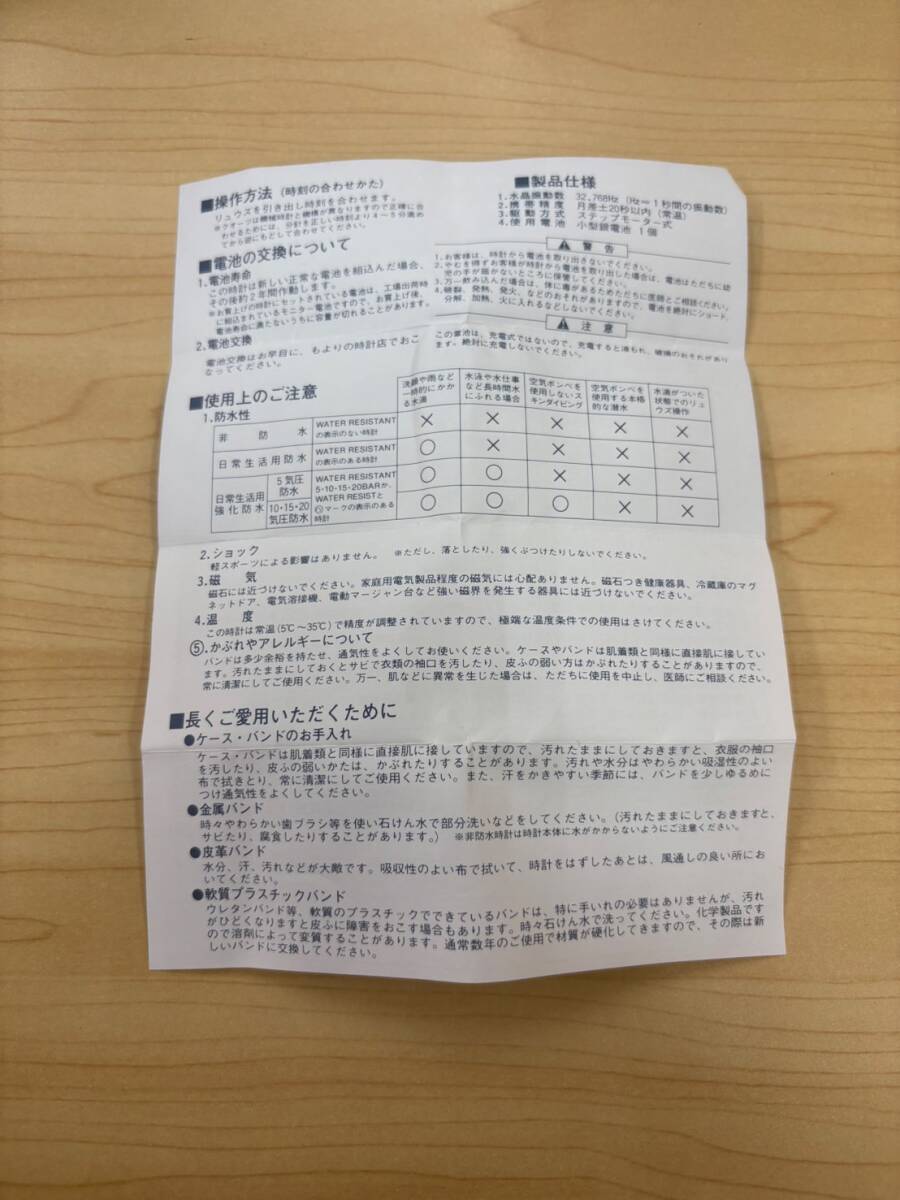 ■操作方法（時刻の合わせかた）
リュウズを引き出し時刻を合わせます。
※クオーツは機械時計と機構が異なりますので正確に合
わせるためには、分針を正しい時刻より4〜5分進め
てから逆にもどして合わせてください。
■電池の交換について
1.電池寿命
この時計は新しい正常な電池を組込んだ場合、
その後約2年間作動します。
※お買上げの時計にセットされている電池は、工場出荷時
に組込まれているモニター電池ですので、お買上げ後、
電池寿命に満たないうちに容量が切れることがあります。
2.電池交換
電池交換はお早目に、もよりの時計店でおこ
なってください。
■製品仕様
1.水晶振動数 32,768Hz（Hz＝1秒間の振動数）
2.携帯精度 月差±20秒以内（常温）
3.駆動方式 ステップモーター式
4.使用電池 小型銀電池 1個
⚠ 警 告
1.お客様は、時計から電池を取り出さないでください。
2.やむを得ずお客様が時計から電池を取り出した場合は、電池はただちに幼
児の手が届かないところに保管してください。
3.万一飲み込んだ場合は、体に毒があるためただちに医師とご相談ください。
4.破裂、発熱、発火、などのおそれがありますので、電池を絶対にショート、
分解、加熱、火に入れるなどしないでください。
⚠ 注 意
この電池は、充電式ではないので、充電すると液もれ、破損のおそれがあり
ます。絶対に充電しないでください。
■使用上のご注意
1.防水性
洗顔や雨など
一時的にかか
る水滴
水泳や水仕事
など長時間水
にふれる場合
空気ボンベを
使用しないス
キンダイビング
空気ボンベを
使用する本格
的な潜水
水滴がついた
状態でのリュ
ウズ操作
非 防 水 WATER RESISTANT
の表示のない時計 × × × × ×
日常生活用防水 WATER RESISTANT
の表示のある時計 ○ × × × ×
日常生活用
強化防水
5気圧
防水 ○ ○ × × ×
10・15・20
気圧防水 ○ ○ ○ × ×
WATER RESISTANT
5・10・15・20BARか、
WATER RESISTと
マークの表示のある
時計
2.ショック
軽スポーツによる影響はありません。 ※ただし、落としたり、強くぶつけたりしないでください。
3.磁 気
磁石には近づけないでください。家庭用電気製品程度の磁気には心配ありません。磁石つき健康器具、冷蔵庫のマグ
ネットドア、電気溶接機、電動マージャン台など強い磁界を発生する器具には近づけないでください。
4.温 度
この時計は常温（5℃〜35℃）で精度が調整されていますので、極端な温度条件での使用はさけてください。
⑤.かぶれやアレルギーについて
バンドは多少余裕を持たせ、通気性をよくしてお使いください。ケースやバンドは肌着類と同様に直接肌に接してい
ます。汚れたままにしておくとサビで衣類の袖口を汚したり、皮ふの弱い方はかぶれたりすることがありますので、
常に清潔にしてご使用ください。万一、肌などに異常を生じた場合は、ただちに使用を中止し、医師にご相談ください。
■長くご愛用いただくために
●ケース・バンドのお手入れ
ケース・バンドは肌着類と同様に直接肌に接していますので、汚れたままにしておきますと、衣服の袖口
を汚したり、皮ふの弱いかたは、かぶれたりすることがあります。汚れや水分はやわらかい吸湿性のよい
布で拭きとり、常に清潔にしてご使用ください。また、汗をかきやすい季節には、バンドを少しゆるめに
つけ通気性をよくしてください。
●金属バンド
時々やわらかい歯ブラシ等を使い石けん水で部分洗いなどをしてください。（汚れたままにしておきますと、
サビたり、腐食したりすることがあります。） ※非防水時計は時計本体に水がかからないようにご注意ください。
●皮革バンド
水分、汗、汚れなどが大敵です。吸収性のよい布で拭いて、時計をはずしたあとは、風通しの良い所にお
いてください。
●軟質プラスチックバンド
ウレタンバンド等、軟質のプラスチックでできているバンドは、特に手いれの必要はありませんが、汚れ
がひどくなりますと皮ふに障害をおこす場合もあります。時々石けん水で洗ってください。化学製品です
ので溶剤によって変質することがあります。通常数年のご使用で材質が硬化してきますので、その際は新
しいバンドに交換してください。